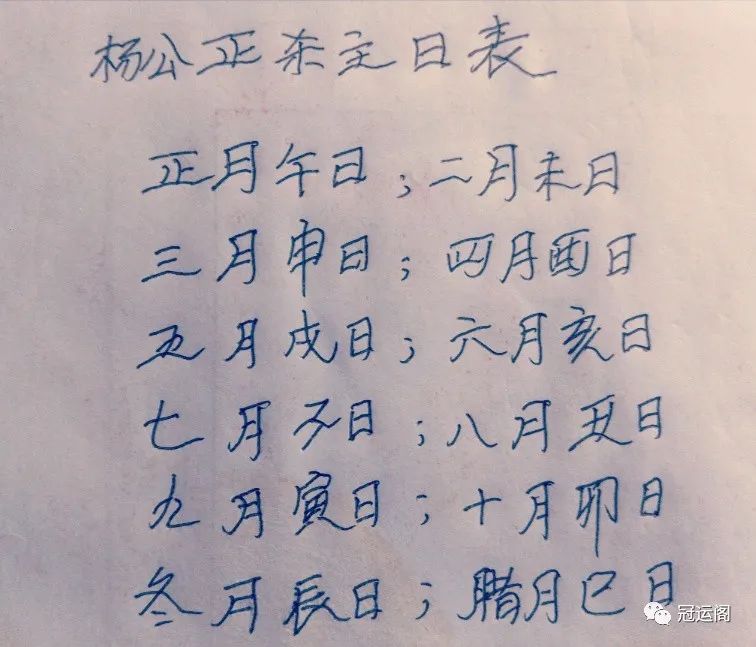 杨公正杀主日表
正月午日；二月未日
三月申日；四月酉日
五月戌日；六月亥日
七月子日；八月丑日
九月寅日；十月卯日
冬月辰日；腊月巳日
冠运阁